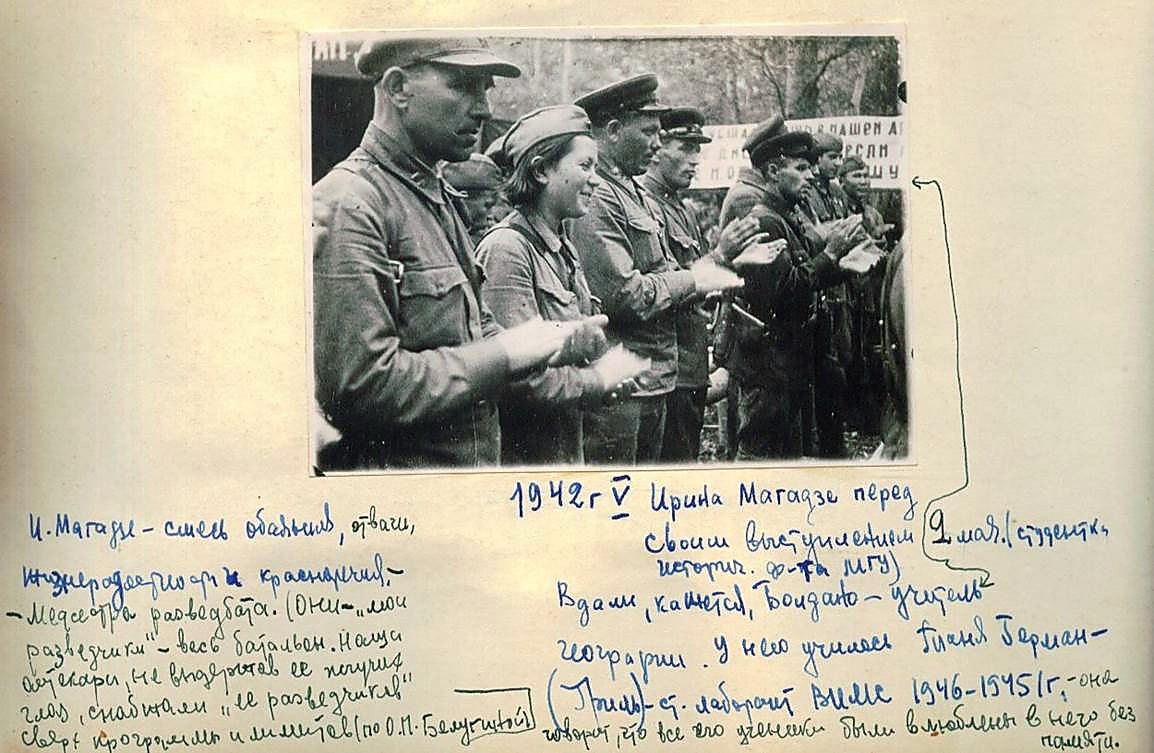 НАШЕМ
ЕСЛИ
1942 г V Ирина Магадзе перед
своим выступлением 9 мая. (студентка
историч. ф-та МГУ)
Вдали, кажется, – учитель
географии. У него училась Герман–
ст. лаборант ВИМС 1946-1945/г, – она
говорит, что все его ученики были влюблены в него без
памяти.
И. Магадзе – смесь обаяния, отваги,
жизнерадостности и красноречия, –
– Медсестра разведбата. (Они – „мои
разведчики" – весь батальон. Наши
аптекари, не выдержав ее жгучих
глаз, снабжали „ее разведчиков"
сверх программы и лимитов (по О.П.